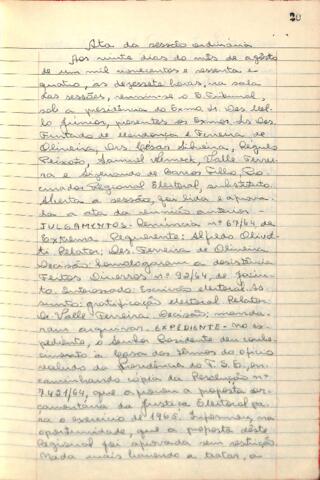 20
Ata da sessão ordinária
Aos vinte dias do mês de agôsto
de um mil novecentos e sessenta e
quatro, às dezessete horas, na sala
das sessões, reuniu-se o E. Tribunal,
sob a presidência do Exmo. Sr. Des.
Júnior, presentes os Exmos. Srs. Des.
Furtado de Mendonça e Ferreira de
Oliveira, Drs. César Silveira, Régulo
Peixoto, Samuel Werneck, Valle Ferrei-
ra e de Barros Filho, Pro-
curador Regional Eleitoral, substituto.
Aberta a sessão, foi lida e aprova-
da a ata da reunião anterior. -
JULGAMENTOS: Denúncia nº 67/64, de
Extrema. Requerente: Alfredo
Relator: Des. Ferreira de Oliveira.
Decisão: homologaram a desistência.
Feitos Diversos nº 92/64, de
Escrivão eleitoral. As-
sunto: gratificação eleitoral. Relator:
Dr. Valle Ferreira. Decisão: manda-
ram arquivar. EXPEDIENTE - No ex-
pediente, o Senhor Presidente deu conhe-
cimento à Casa dos têrmos do ofício
da Presidência do T.S.E., en-
caminhando cópia da Resolução nº
7.421/64, que aprovou a proposta or-
çamentária da Justiça Eleitoral pa-
ra o exercício de 1965. Informou, na
oportunidade, que a proposta dêste
Regional foi aprovada sem restrição.
Nada mais havendo a tratar, a